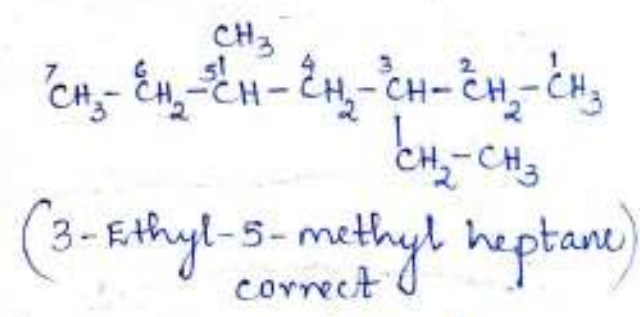 CH₃
⁷CH₃-⁶CH₂-⁵CH-⁴CH₂-³CH-²CH₂-¹CH₃
CH₂-CH₃
(3-Ethyl-5-methyl heptane)
correct